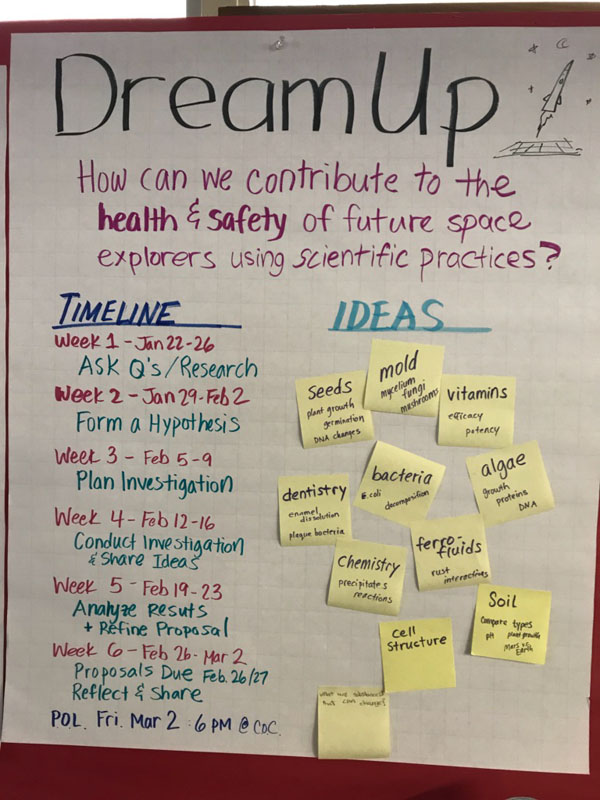 DreamUp
How can we contribute to the
health & safety of future space
explorers using scientific practices?
TIMELINE
Week 1 - Jan 22-26
ASK Q's/Research
Week 2 - Jan 29-Feb 2
Form a Hypothesis
Week 3 - Feb 5-9
Plan Investigation
Week 4 - Feb 12-16
Conduct Investigation
& Share Ideas
Week 5 - Feb 19-23
Analyze Resuts
+ Refine Proposal
Week 6 - Feb 26-Mar 2
Proposals Due Feb. 26/27
Reflect & Share
POL. Fri. Mar 2 : 6 PM @ COC.
IDEAS
Seeds
plant growth
germination
DNA changes
mold
mycelium
fungi
mushrooms
vitamins
efficacy
potency
dentistry
enamel
dissolution
plaque bacteria
bacteria
E.coli
decomposition
algae
growth
proteins
DNA
Chemistry
precipitates
reactions
ferro-
fluids
rust
interactions
Soil
Compare types
pH plant growth
Mars vs.
Earth
cell
structure
what are substances
that can change?